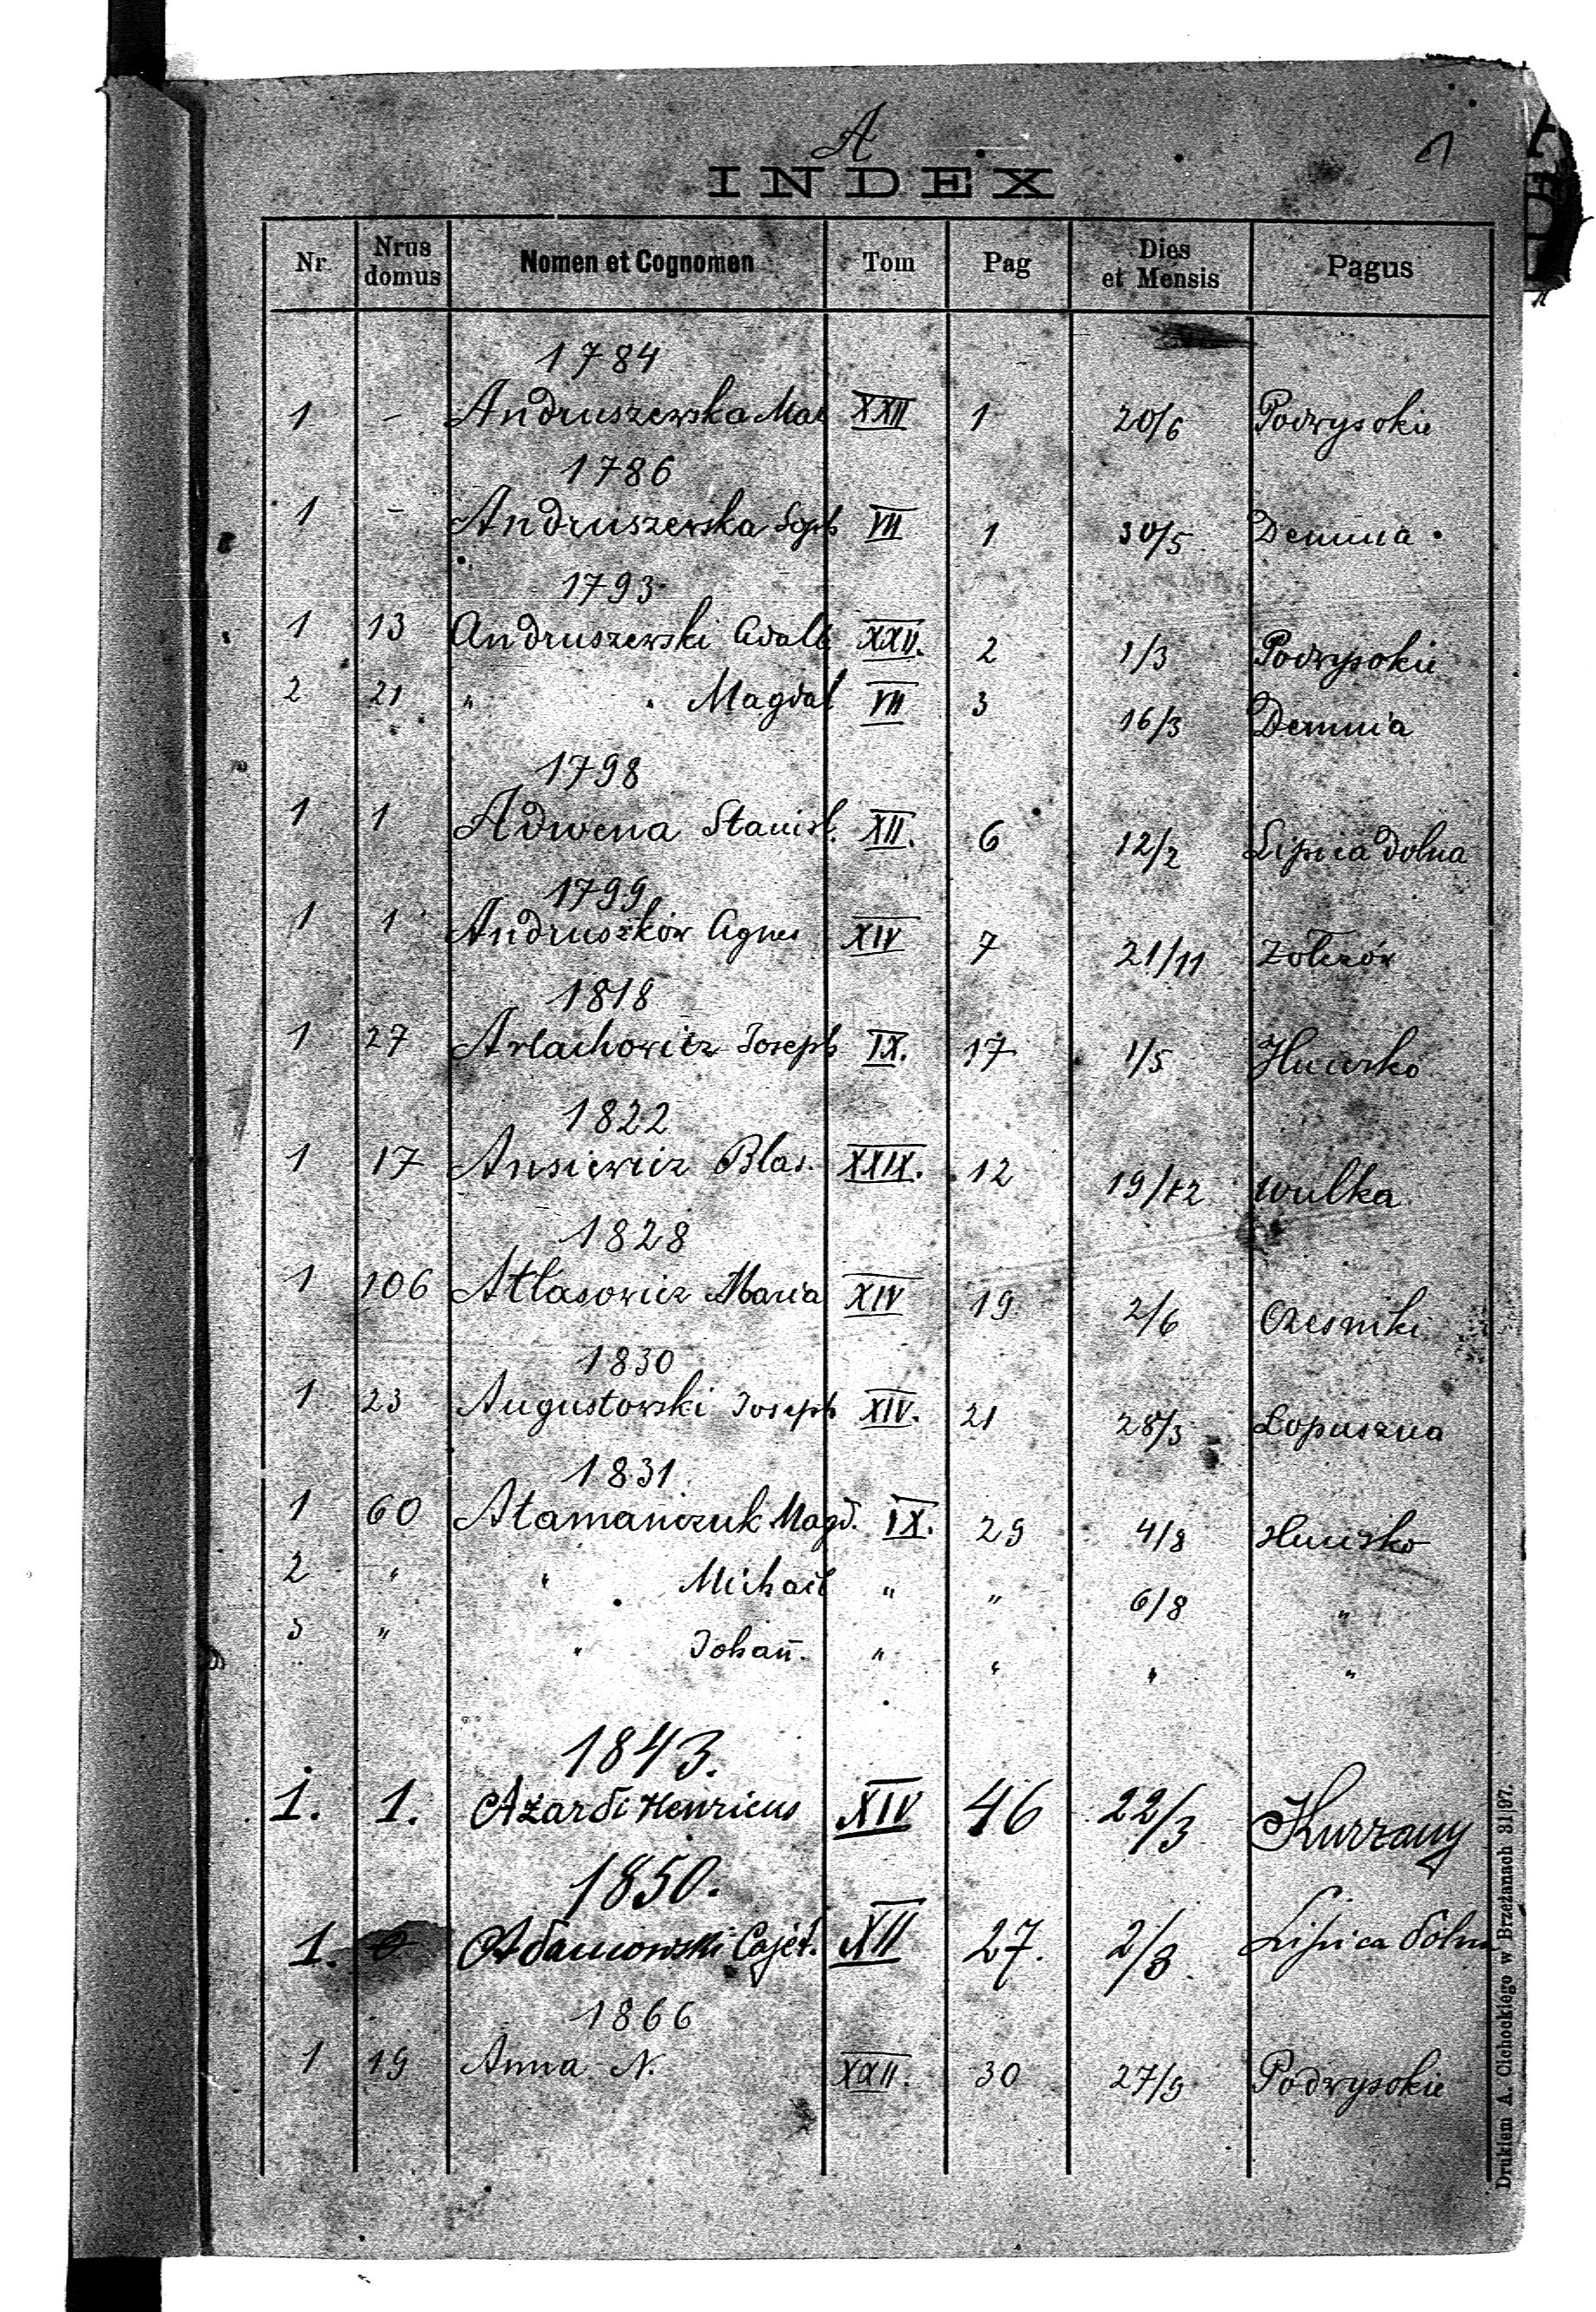 A
1
INDEX
Nr. Nrus domus Nomen et Cognomen Tom Pag Dies et Mensis Pagus
1784
1 - Andruszewska Mar XXII 1 20/6 Podwysokie
1786
1 - Andruszewska Soph VII 1 30/5 Demnia
1793
1 13 Andruszewski Adalb XXII. 2 1/3 Podwysokie
2 21 " " Magdal VII 3 16/3 Demnia
1798
1 1 Adwena Stanisl. XII. 6 12/2 Lipica dolna
1799
1 1 Andruszków Agnes XIV 7 21/11
1818
1 27 Joseph IX. 17 1/5 Hucisko
1822
1 17 Ansiewicz Blas. XXIX. 12 19/12 Wulka
1828
1 106 Atlasowicz Maria XIV 19 2/6 Czesniki
1830
1 23 Augustowski Joseph XIV. 21 28/3 Lopuszna
1831
1 60 Atamańczuk Magd. IX. 29 4/8 Hucisko
2 " " Michael " " 6/8 "
3 " " Johan̄. " " " "
1843.
1. 1. Azardi Henricus XIV 46 22/3 Kurzany
1850.
1. Adamowski Cajet. XII 27. 2/8. Lipica dolna
1866
1 19 Anna N. XXII. 30 27/9 Podwysokie
Drukiem A. Cichockiego w Brzeżanach 31|97.